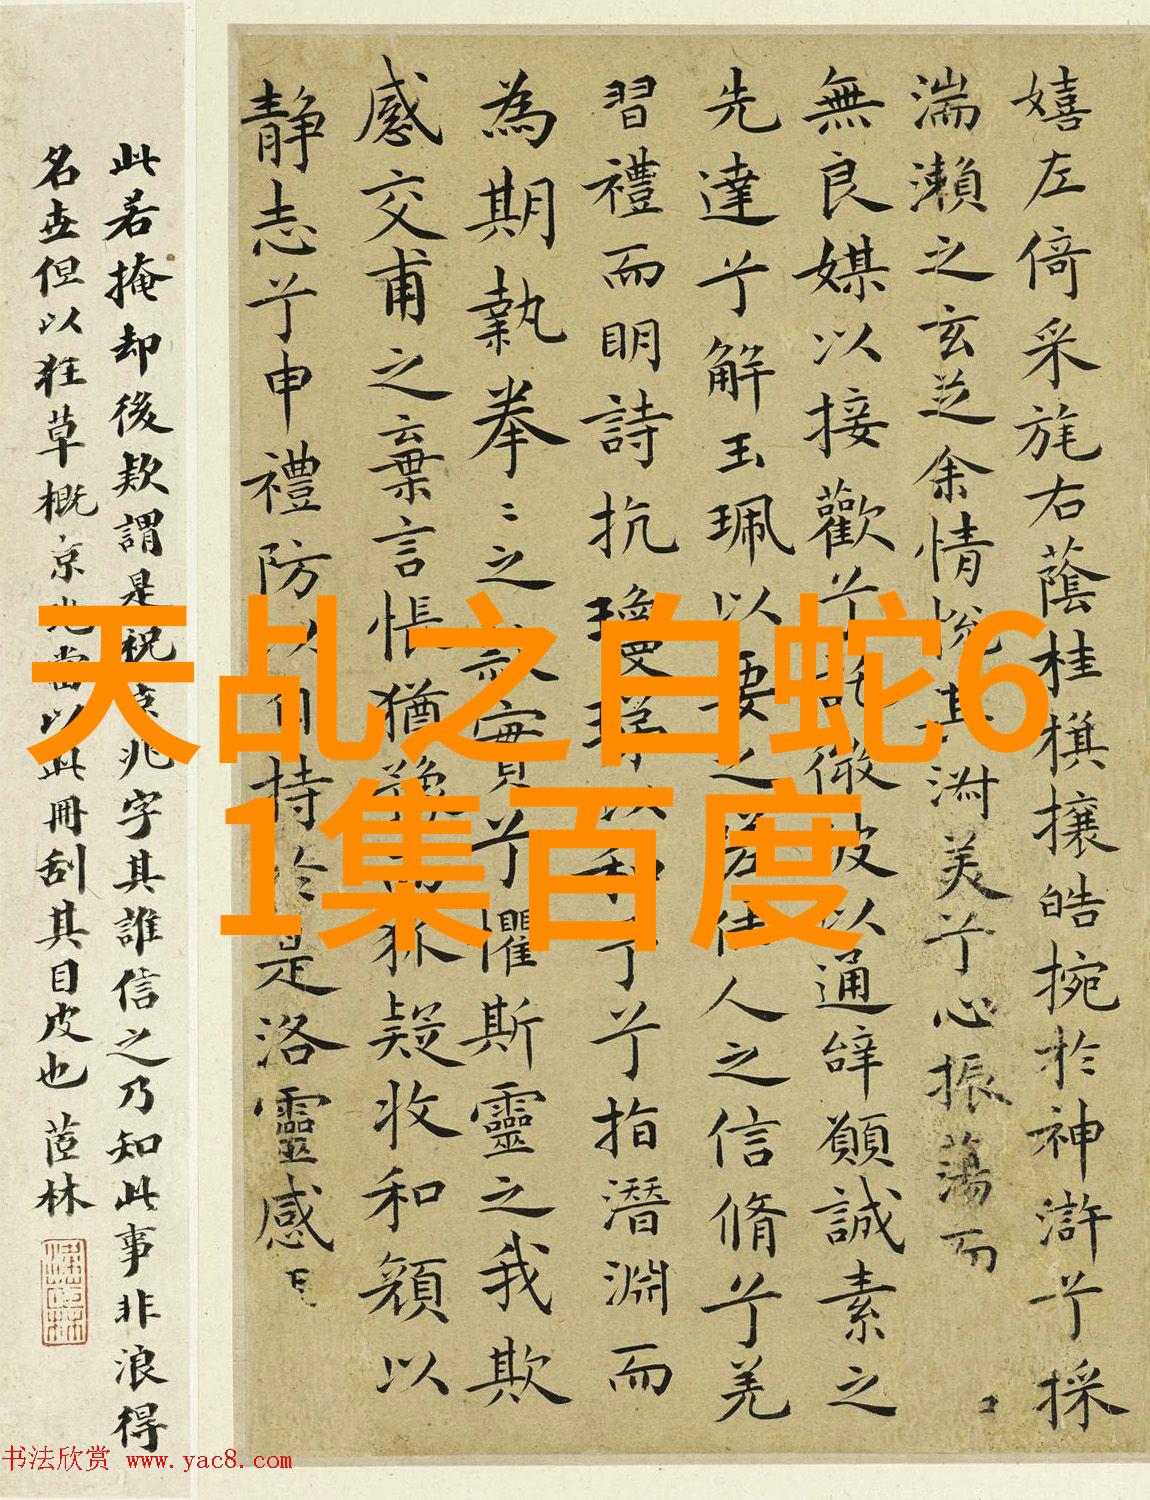 天乩之白蛇6
1集百度
嬉左倚采旄右蔭桂旗攘皓捥於神滸兮採
湍瀨之玄芝余情悅其淑美兮心振蕩而
無良媒以接歡兮託微波以通辭願誠素之
先達兮解玉珮以要之嗟佳人之信脩兮羌
習禮而明詩抗瓊珶以和予兮指潛淵而
為期執拳〻之款實兮懼斯靈之我欺
感交甫之棄言悵猶豫而狐疑收和顏以
靜志兮申禮防以自持於是洛靈感
此若掩却後款謂是祝京兆字其誰信之乃知此事非浪得
名世但以狂草概京兆當以此冊刮其目皮也 茝林
书法欣赏 www.yac8.com